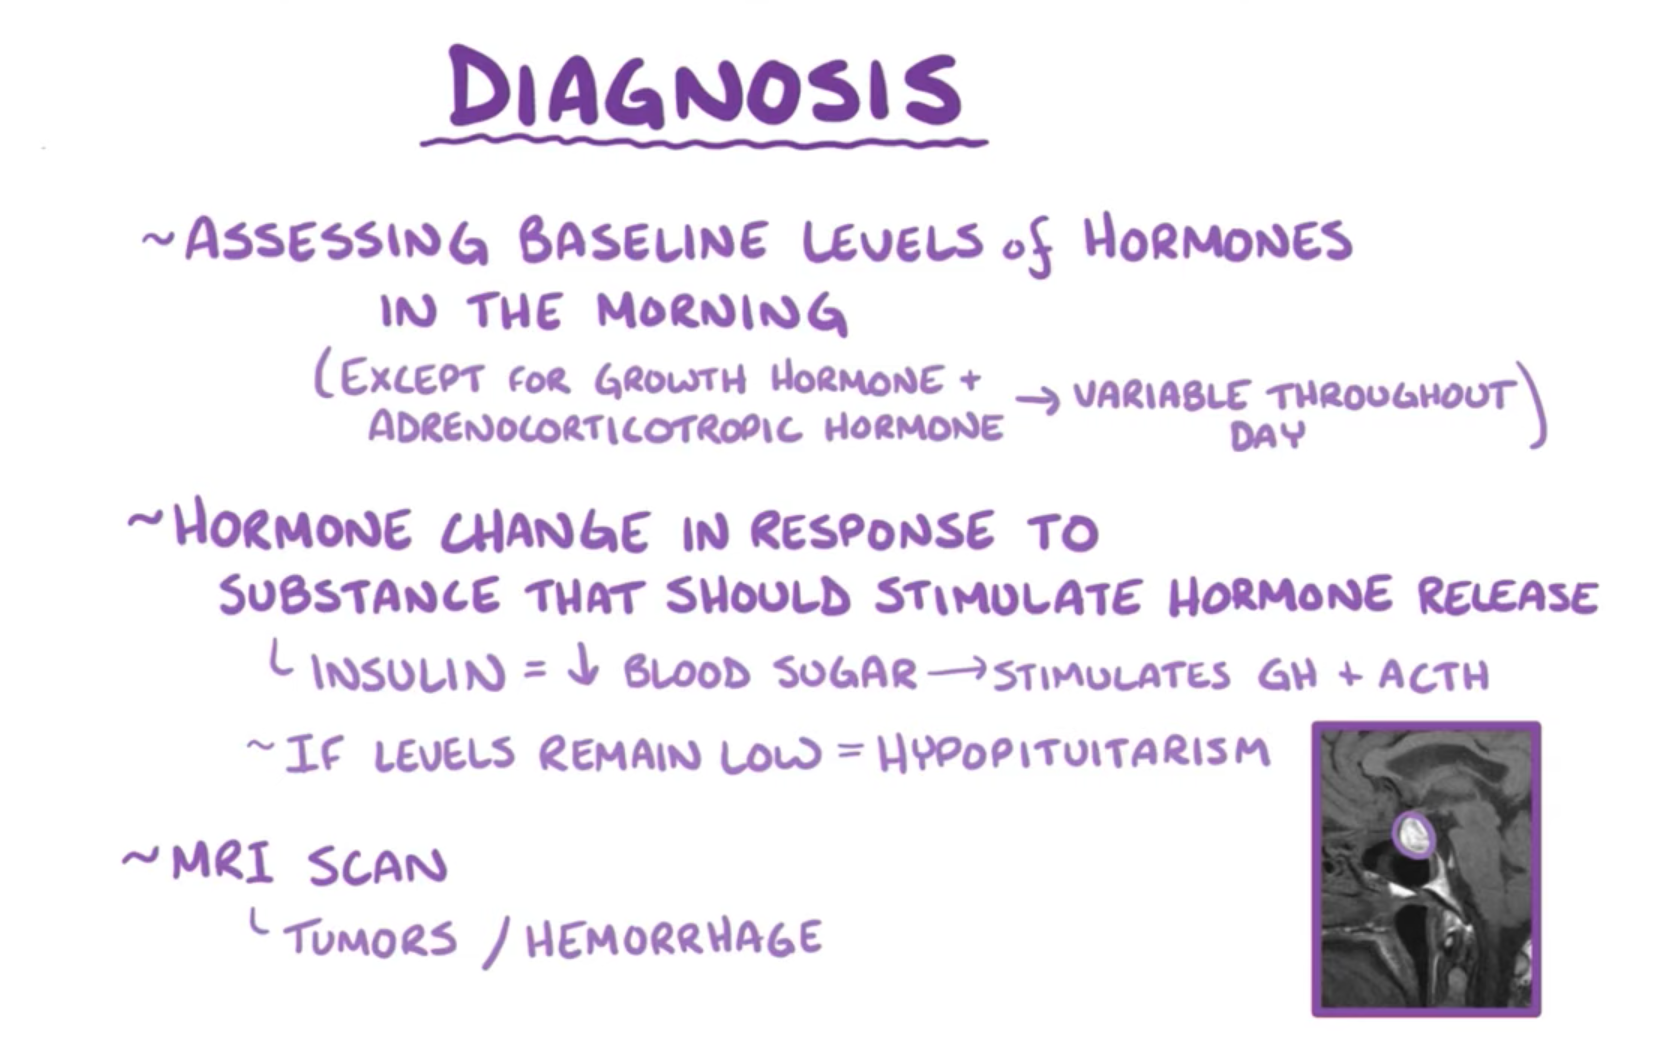 DIAGNOSIS
~ASSESSING BASELINE LEVELS of HORMONES
IN THE MORNING
(EXCEPT FOR GROWTH HORMONE +
ADRENOCORTICOTROPIC HORMONE → VARIABLE THROUGHOUT
DAY)
~HORMONE CHANGE IN RESPONSE TO
SUBSTANCE THAT SHOULD STIMULATE HORMONE RELEASE
└ INSULIN = ↓ BLOOD SUGAR → STIMULATES GH + ACTH
~IF LEVELS REMAIN LOW = HYPOPITUITARISM
~MRI SCAN
└ TUMORS / HEMORRHAGE